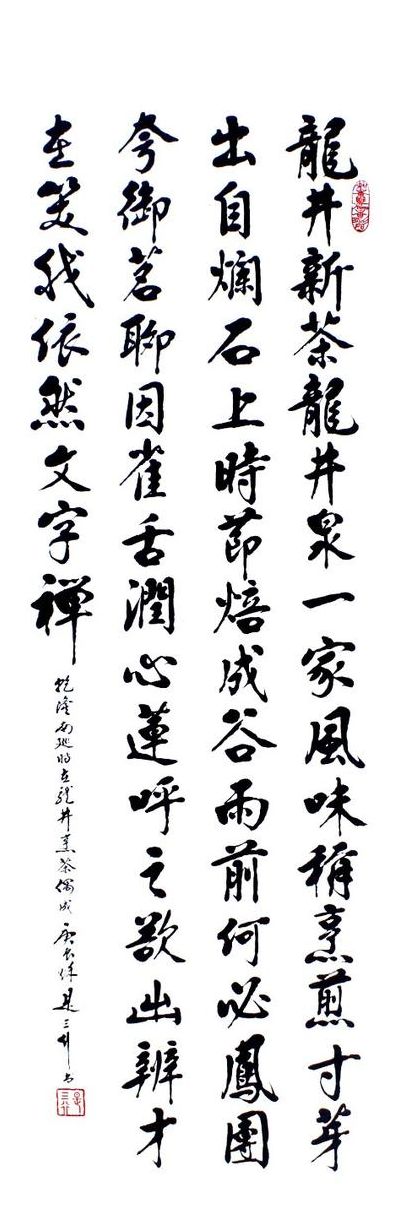 龍井新茶龍井泉一家風味稱烹煎寸芽
出自爛石上時節焙成谷雨前何必鳳團
夸御茗聊因雀舌潤心蓮呼之欲出辨才
在笑我依然文字禅
乾隆南巡时在龍井烹茶偶成